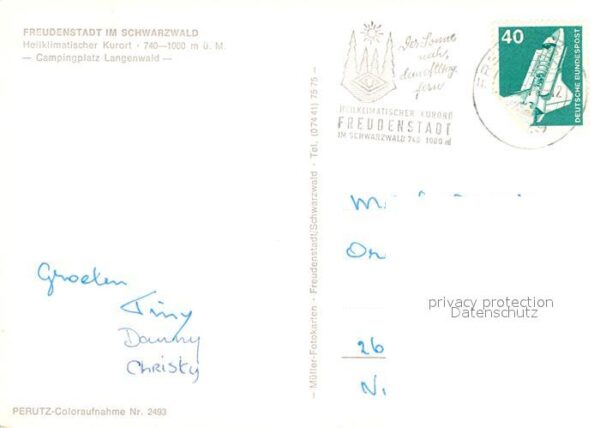 FREUDENSTADT IM SCHWARZWALD
Heilklimatischer Kurort · 740—1000 m ü. M.
— Campingplatz Langenwald —
Groeten
Tiny
Danny
Christy
PERUTZ-Coloraufnahme Nr. 2493
— Müller-Fotokarten · Freudenstadt/Schwarzwald · Tel. (0 74 41) 75 75 —
Der Sonne
nah,
dem Alltag
fern
HEILKLIMATISCHER KURORT
FREUDENSTADT
IM SCHWARZWALD 740-1000 m
40
DEUTSCHE BUNDESPOST
M
On
privacy protection
Datenschutz
26
N